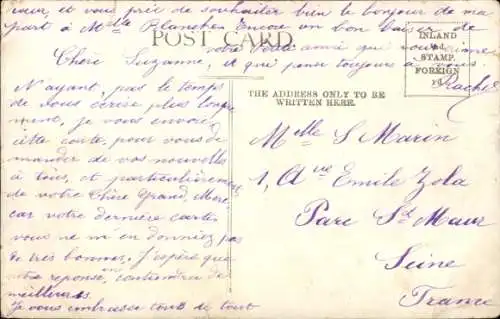 cœur, et vous prie de souhaiter bien le bonjour de ma
part à Melle Planches Encore un bon baiser de
votre petite amie qui vous aime
et qui pense toujours à vous.
Rachel
POST CARD
INLAND
½d.
STAMP.
FOREIGN
1d.
THE ADDRESS ONLY TO BE
WRITTEN HERE.
Chère Suzanne,
N'ayant pas le temps
de vous écrire plus longue
mine, je vous envoie
cette carte, pour vous de
mander de vos nouvelles
à tous, et particulièrement
de votre Chère Grand, Mère
car votre dernière carte
vous ne m'en donniez pas
de très bonnes. J'espère que
votre réponse, contiendra de
meilleures
Je vous embrasse tous de tout
Melle S Marin
1, Ave Emile Zola
Parc St Maur
Seine
France